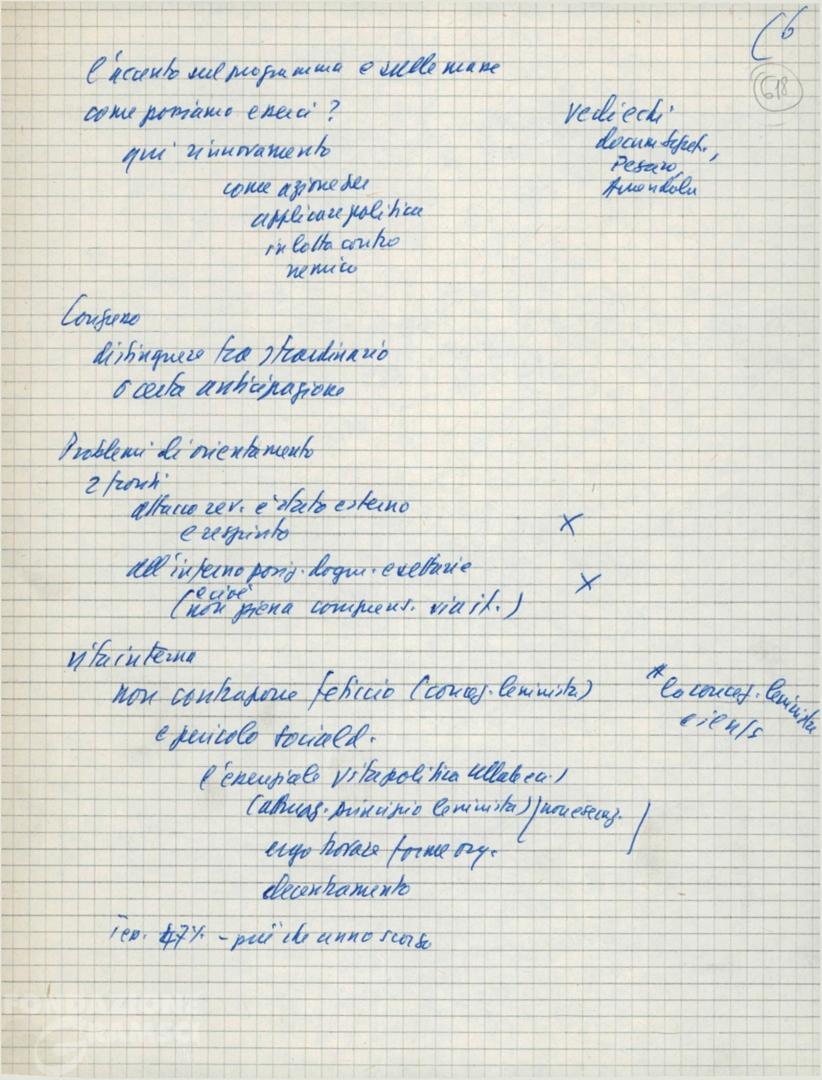 6
618
l'accento sul programma e sulle masse
come possiamo esserci?
qui rinnovamento
come azione per
applicare politica
in lotta contro
nemico
Vecliechi
docum. segret.,
Pesaro,
Amendola
Congresso
distinguere tra straordinario
o certa anticipazione
Problemi di orientamento
2 fronti
attacco rev. è stato esterno
e respinto
all'interno posiz. dogm. e settarie
e cioè
(non piena comprens. via it.)
vita interna
non contrapporre feticcio (concez. leninista)
e pericolo sociald.
* la concez. leninista
l'essenziale vita politica alla
principio leninista)
ergo trovare forme org.
decentramento
Tess. 47% - più che anno scorso
FONDAZIONE
GRAMSCI